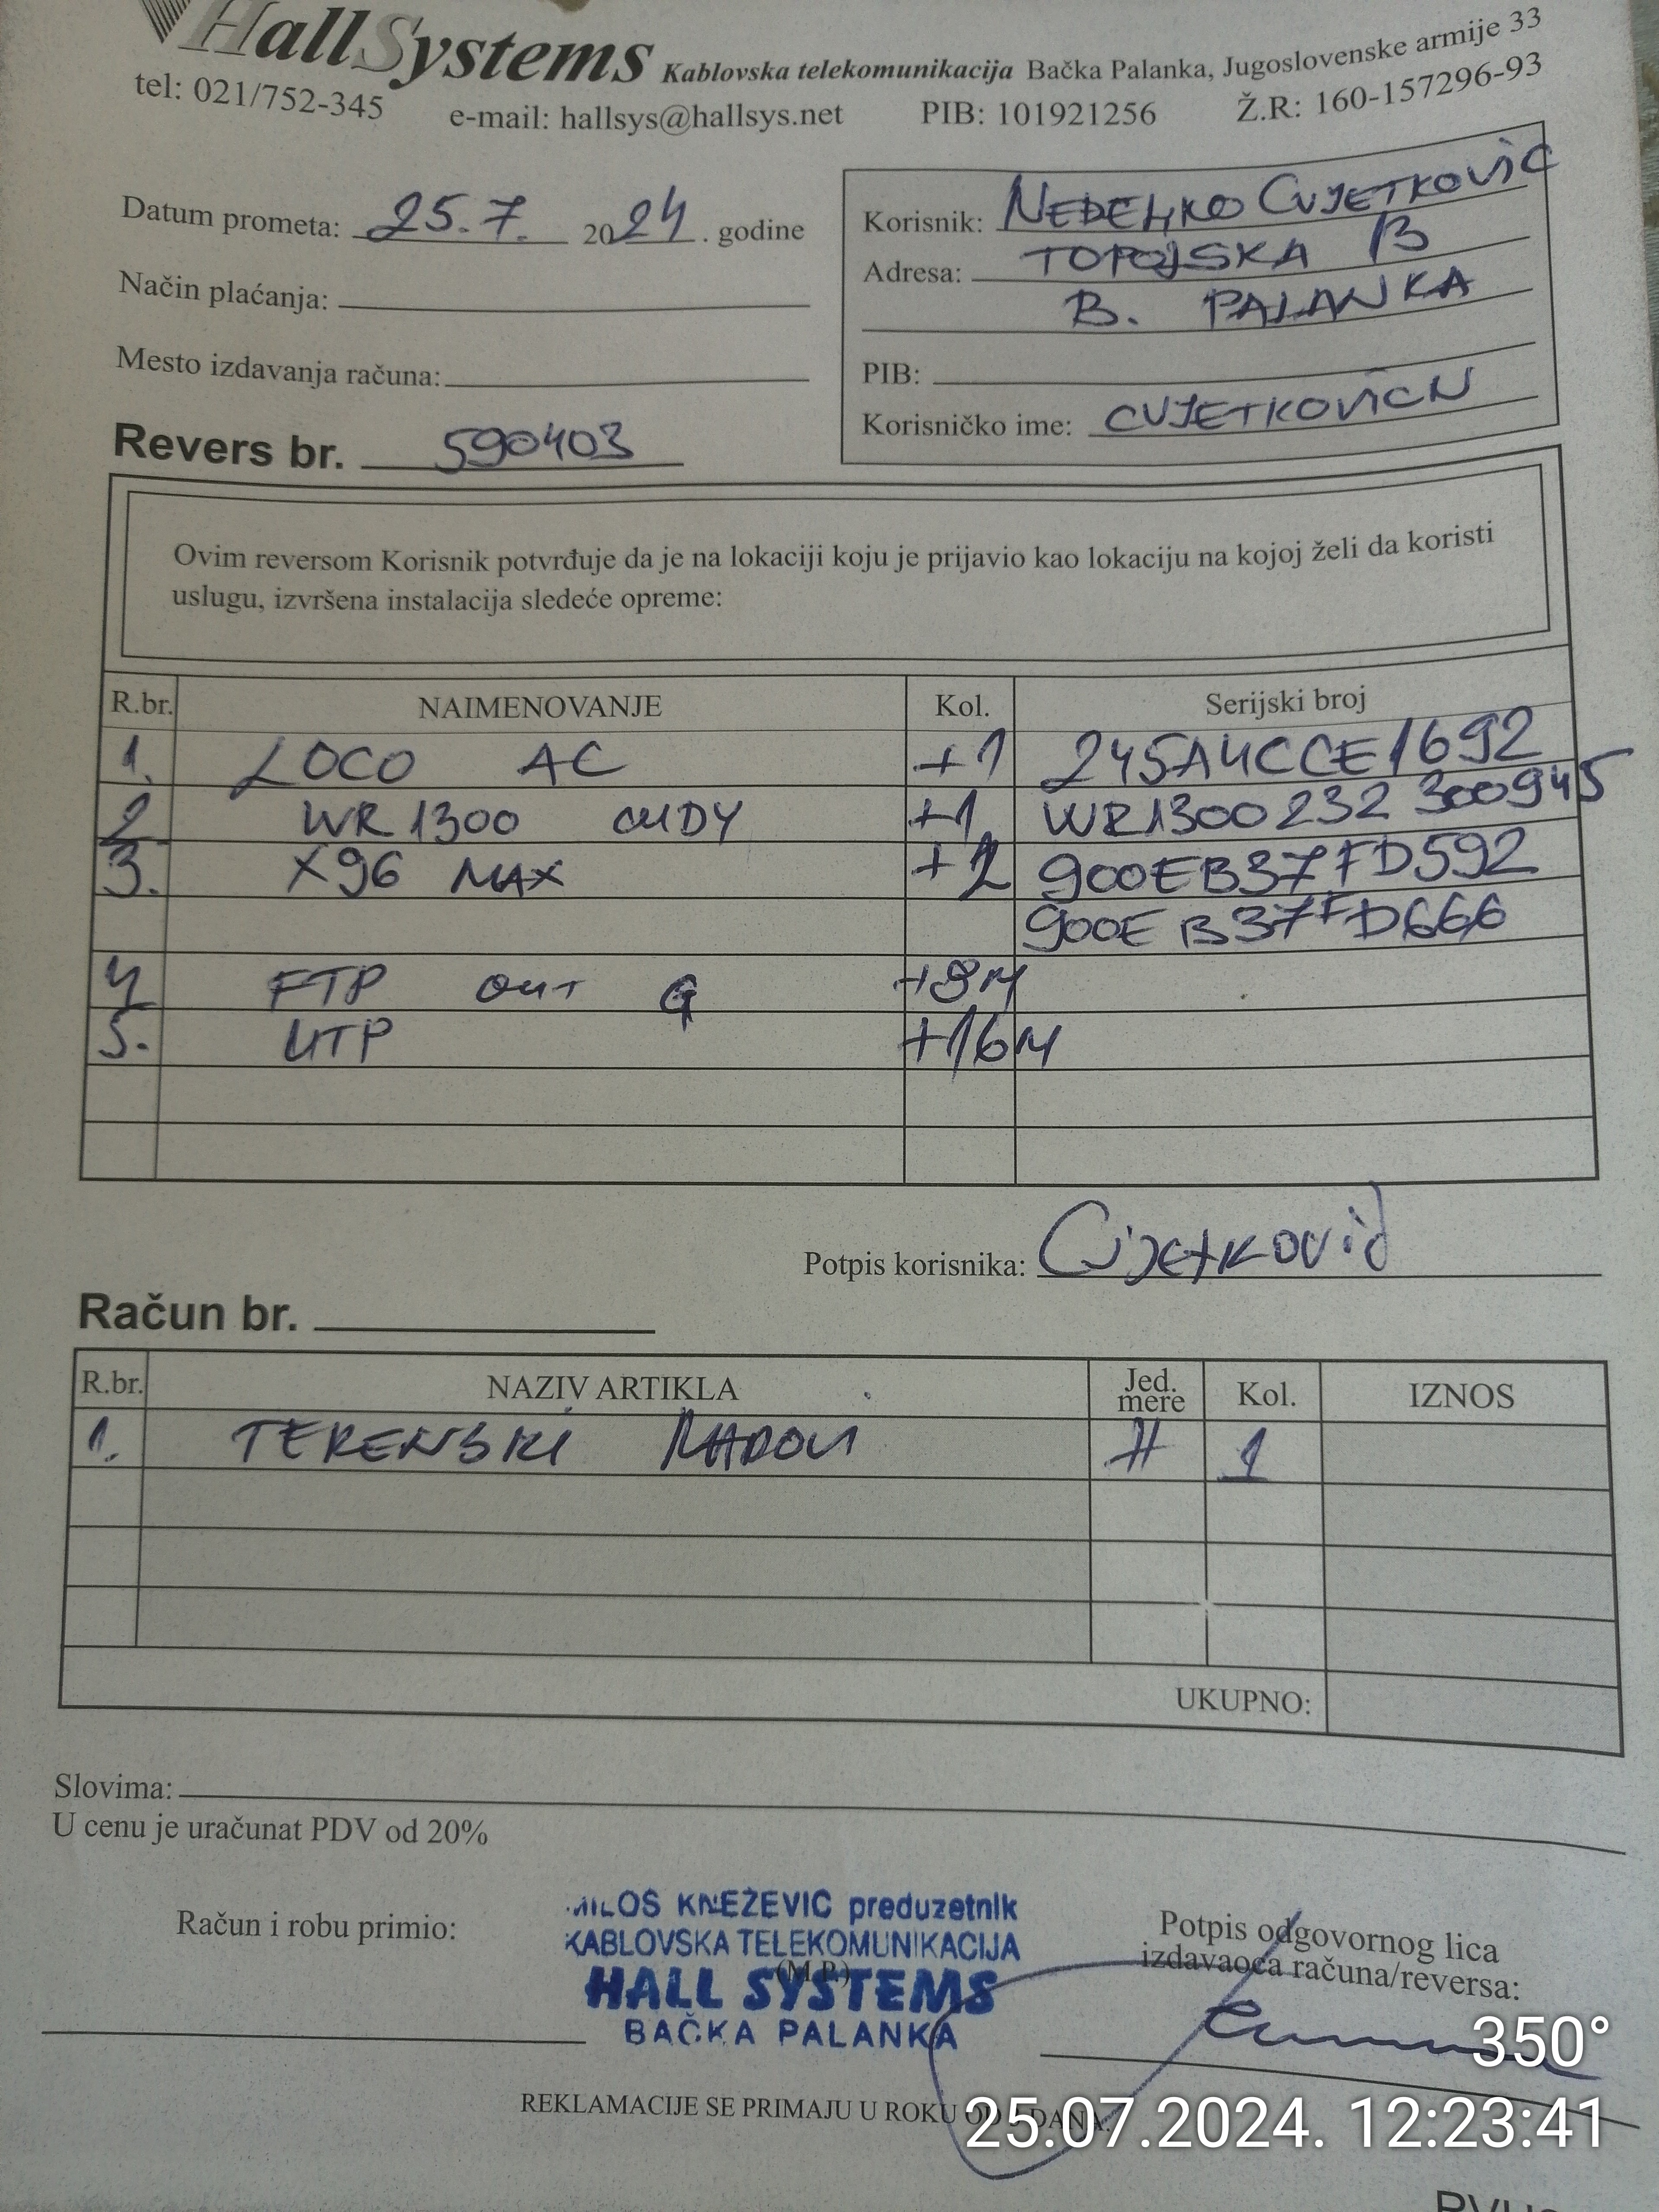 HallSystems Kablovska telekomunikacija Bačka Palanka, Jugoslovenske armije 33
tel: 021/752-345 e-mail: hallsys@hallsys.net PIB: 101921256 Ž.R: 160-157296-93
Datum prometa: 25.7. 2024. godine
Način plaćanja:
Mesto izdavanja računa:
Revers br. 590403
Korisnik: NEDELJKO CVJETKOVIĆ
Adresa: TOPOLSKA 13
B. PALANKA
PIB:
Korisničko ime: CVJETKOVICN
Ovim reversom Korisnik potvrđuje da je na lokaciji koju je prijavio kao lokaciju na kojoj želi da koristi
uslugu, izvršena instalacija sledeće opreme:
R.br. NAIMENOVANJE Kol. Serijski broj
1. LOCO AC +1 245A4CCE1692
2 WR1300 CUDY +1 WR1300232300945
3. X96 MAX +2 900EB37FD592
900EB37FD666
4 FTP OUT G +8M
5. UTP +16M
Potpis korisnika: Cvjetković
Račun br.
R.br. NAZIV ARTIKLA Jed. mere Kol. IZNOS
1. TERENSKI RADOVI H 1
UKUPNO:
Slovima:
U cenu je uračunat PDV od 20%
Račun i robu primio:
MILOŠ KNEŽEVIĆ preduzetnik
KABLOVSKA TELEKOMUNIKACIJA
(M.P.)
HALL SYSTEMS
BAČKA PALANKA
Potpis odgovornog lica
izdavaoca računa/reversa:
350°
REKLAMACIJE SE PRIMAJU U ROKU OD DANA
25.07.2024. 12:23:41